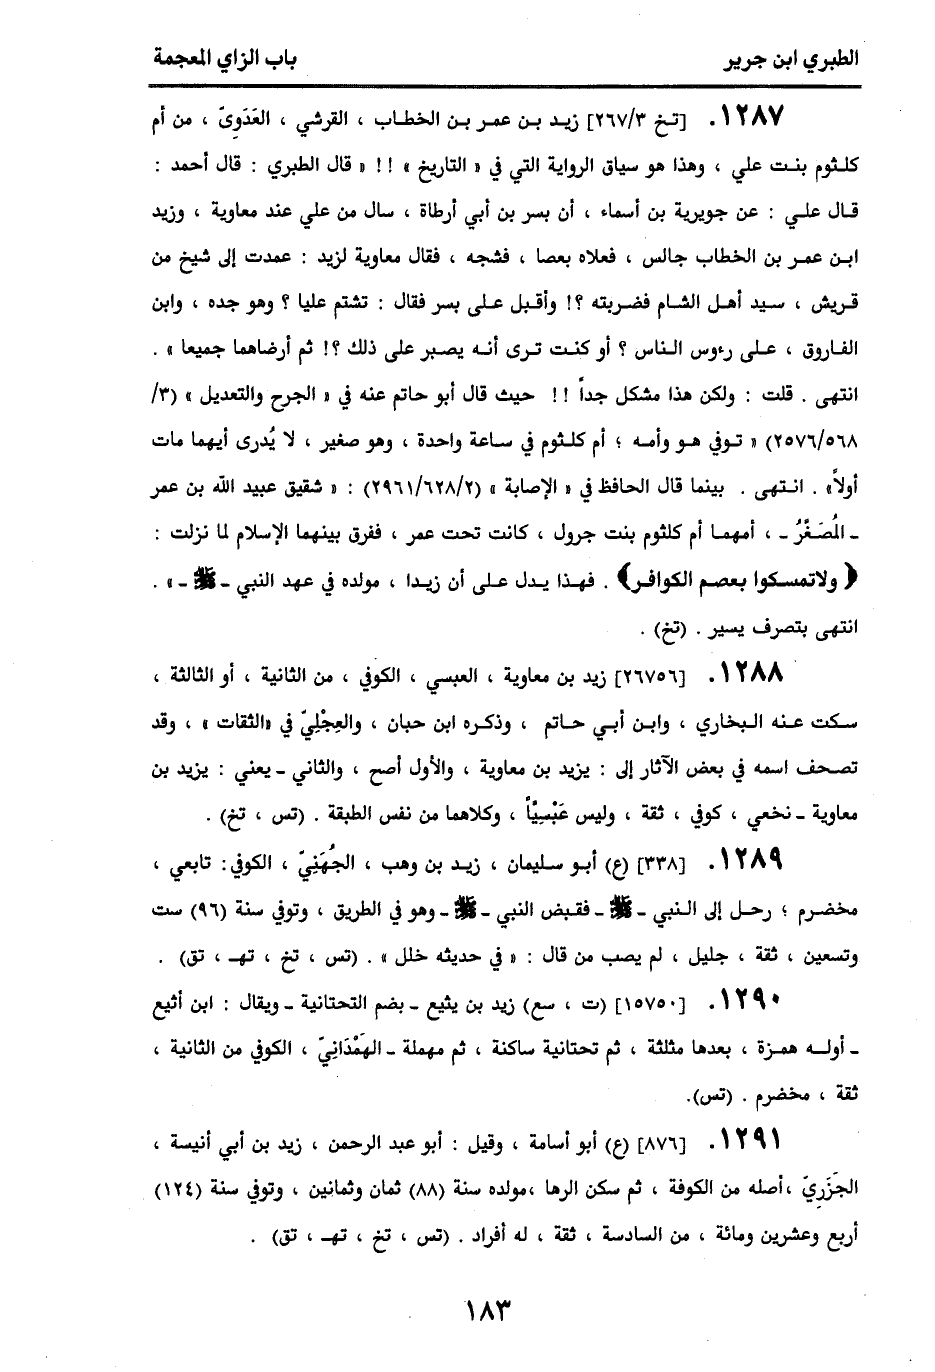 الطبري ابن جرير
باب الزاي المعجمة
١٢٨٧. [تخ ٢٦٧/٣] زيد بن عمر بن الخطاب ، القرشي ، العَدَوِىّ ، من أم
كلثوم بنت علي ، وهذا هو سياق الرواية التي في « التاريخ » !! « قال الطبري : قال أحمد :
قال علي : عن جويرية بن أسماء ، أن بسر بن أبي أرطاة ، سال من علي عند معاوية ، وزيد
ابن عمر بن الخطاب جالس ، فعلاه بعصا ، فشجه ، فقال معاوية لزيد : عمدت إلى شيخ من
قريش ، سيد أهل الشام فضربته ؟! وأقبل على بسر فقال : تشتم عليا ؟ وهو جده ، وابن
الفاروق ، على رءوس الناس ؟ أو كنت ترى أنه يصبر على ذلك ؟! ثم أرضاهما جميعا » .
انتهى . قلت : ولكن هذا مشكل جداً !! حيث قال أبو حاتم عنه في « الجرح والتعديل » (٣/
٢٥٧٦/٥٦٨) « توفي هو وأمه ؛ أم كلثوم في ساعة واحدة ، وهو صغير ، لا يُدرى أيهما مات
أولاً» . انتهى . بينما قال الحافظ في « الإصابة » (٢٩٦١/٦٢٨/٢) : « شقيق عبيد الله بن عمر
ـ المُصَغَّرُ ـ ، أمهما أم كلثوم بنت جرول ، كانت تحت عمر ، ففرق بينهما الإسلام لما نزلت :
﴿ ولاتمسكوا بعصم الكوافر﴾ . فهذا يدل على أن زيدا ، مولده في عهد النبي ـ ﷺ ـ» .
انتهى بتصرف يسير . (تخ) .
١٢٨٨. [٢٦٧٥٦] زيد بن معاوية ، العبسي ، الكوفي ، من الثانية ، أو الثالثة ،
سكت عنه البخاري ، وابن أبي حاتم ، وذكره ابن حبان ، والعِجْلِيّ في «الثقات» ، وقد
تصحف اسمه في بعض الآثار إلى : يزيد بن معاوية ، والأول أصح ، والثاني ـ يعني : يزيد بن
معاوية ـ نخعي ، كوفي ، ثقة ، وليس عَبْسِيّاً ، وكلاهما من نفس الطبقة . (تس ، تخ) .
١٢٨٩. [٣٣٨] (ع) أبو سليمان ، زيد بن وهب ، الجُهَنِيّ ، الكوفي: تابعي ،
مخضرم ؛ رحل إلى النبي ـ ﷺ ـ فقبض النبي ـ ﷺ ـ وهو في الطريق ، وتوفي سنة (٩٦) ست
وتسعين ، ثقة ، جليل ، لم يصب من قال : « في حديثه خلل » . (تس ، تخ ، تهـ ، تق) .
١٢٩٠. [١٥٧٥٠] (ت ، سع) زيد بن يثيع ـ بضم التحتانية ـ ويقال : ابن أثيع
ـ أوله همزة ، بعدها مثلثة ، ثم تحتانية ساكنة ، ثم مهملة ـ الهَمْدَانِيّ ، الكوفي من الثانية ،
ثقة ، مخضرم . (تس).
١٢٩١. [٨٧٦] (ع) أبو أسامة ، وقيل : أبو عبد الرحمن ، زيد بن أبي أنيسة ،
الجَزَرِيّ ،أصله من الكوفة ، ثم سكن الرها ،مولده سنة (٨٨) ثمان وثمانين ، وتوفي سنة (١٢٤)
أربع وعشرين ومائة ، من السادسة ، ثقة ، له أفراد . (تس ، تخ ، تهـ ، تق) .
١٨٣